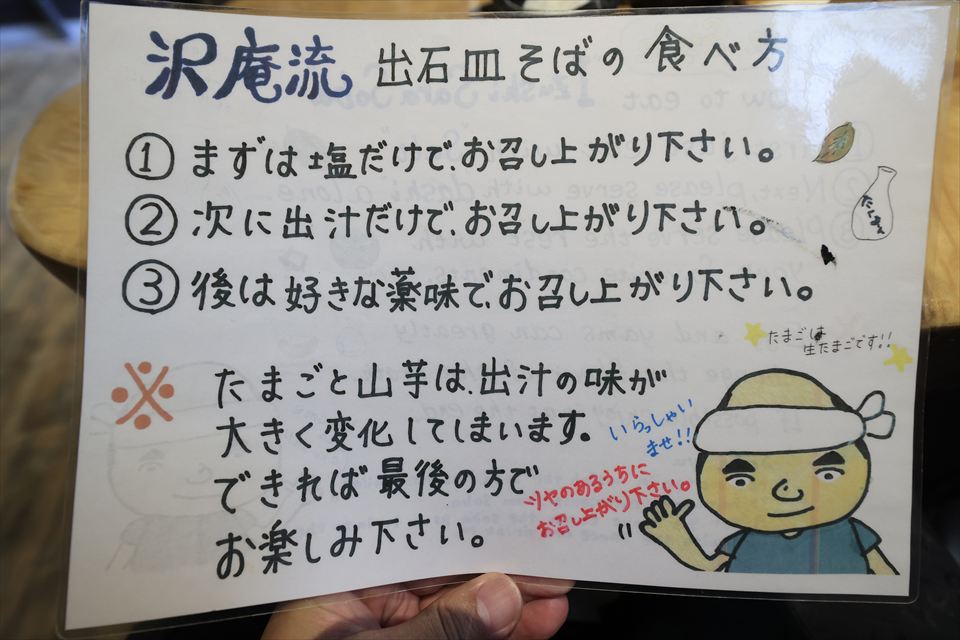 沢庵流 出石皿そばの食べ方
① まずは塩だけでお召し上がり下さい。
② 次に出汁だけで、お召し上がり下さい。
③ 後は好きな薬味で、お召し上がり下さい。
たまごは
生たまごです!!
※ たまごと山芋は、出汁の味が
大きく変化してしまいます。
できれば最後の方で
お楽しみ下さい。
いらっしゃい
ませ!!
ツヤのあるうちに
お召し上がり下さい。